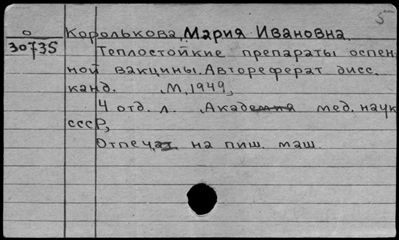 5
о Королькова, Мария Ивановна.
30735
Теплостойкие препараты оспен-
ной вакцины. Автореферат дисс.
канд. М, 1949,
4 отд. л. Академия мед. наук
СССР,
Отпечат на пиш. маш.